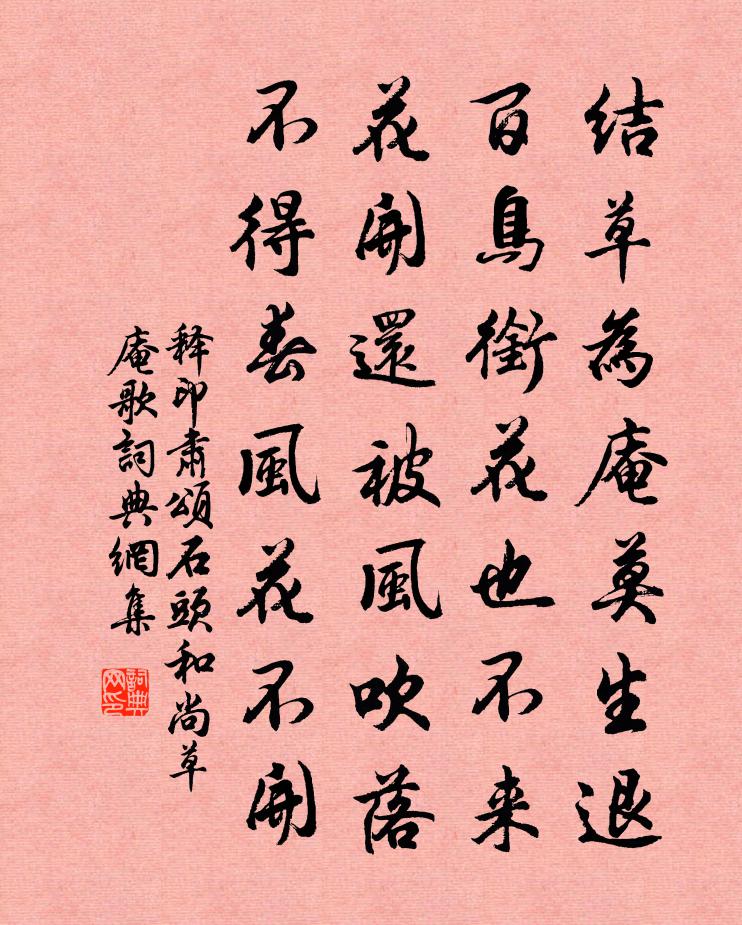 结草為庵莫生退
百鳥銜花也不来
花開還被風吹落
不得春風花不開
释印肃頌石頭和尚草
庵歌詞典網集
詞典网印